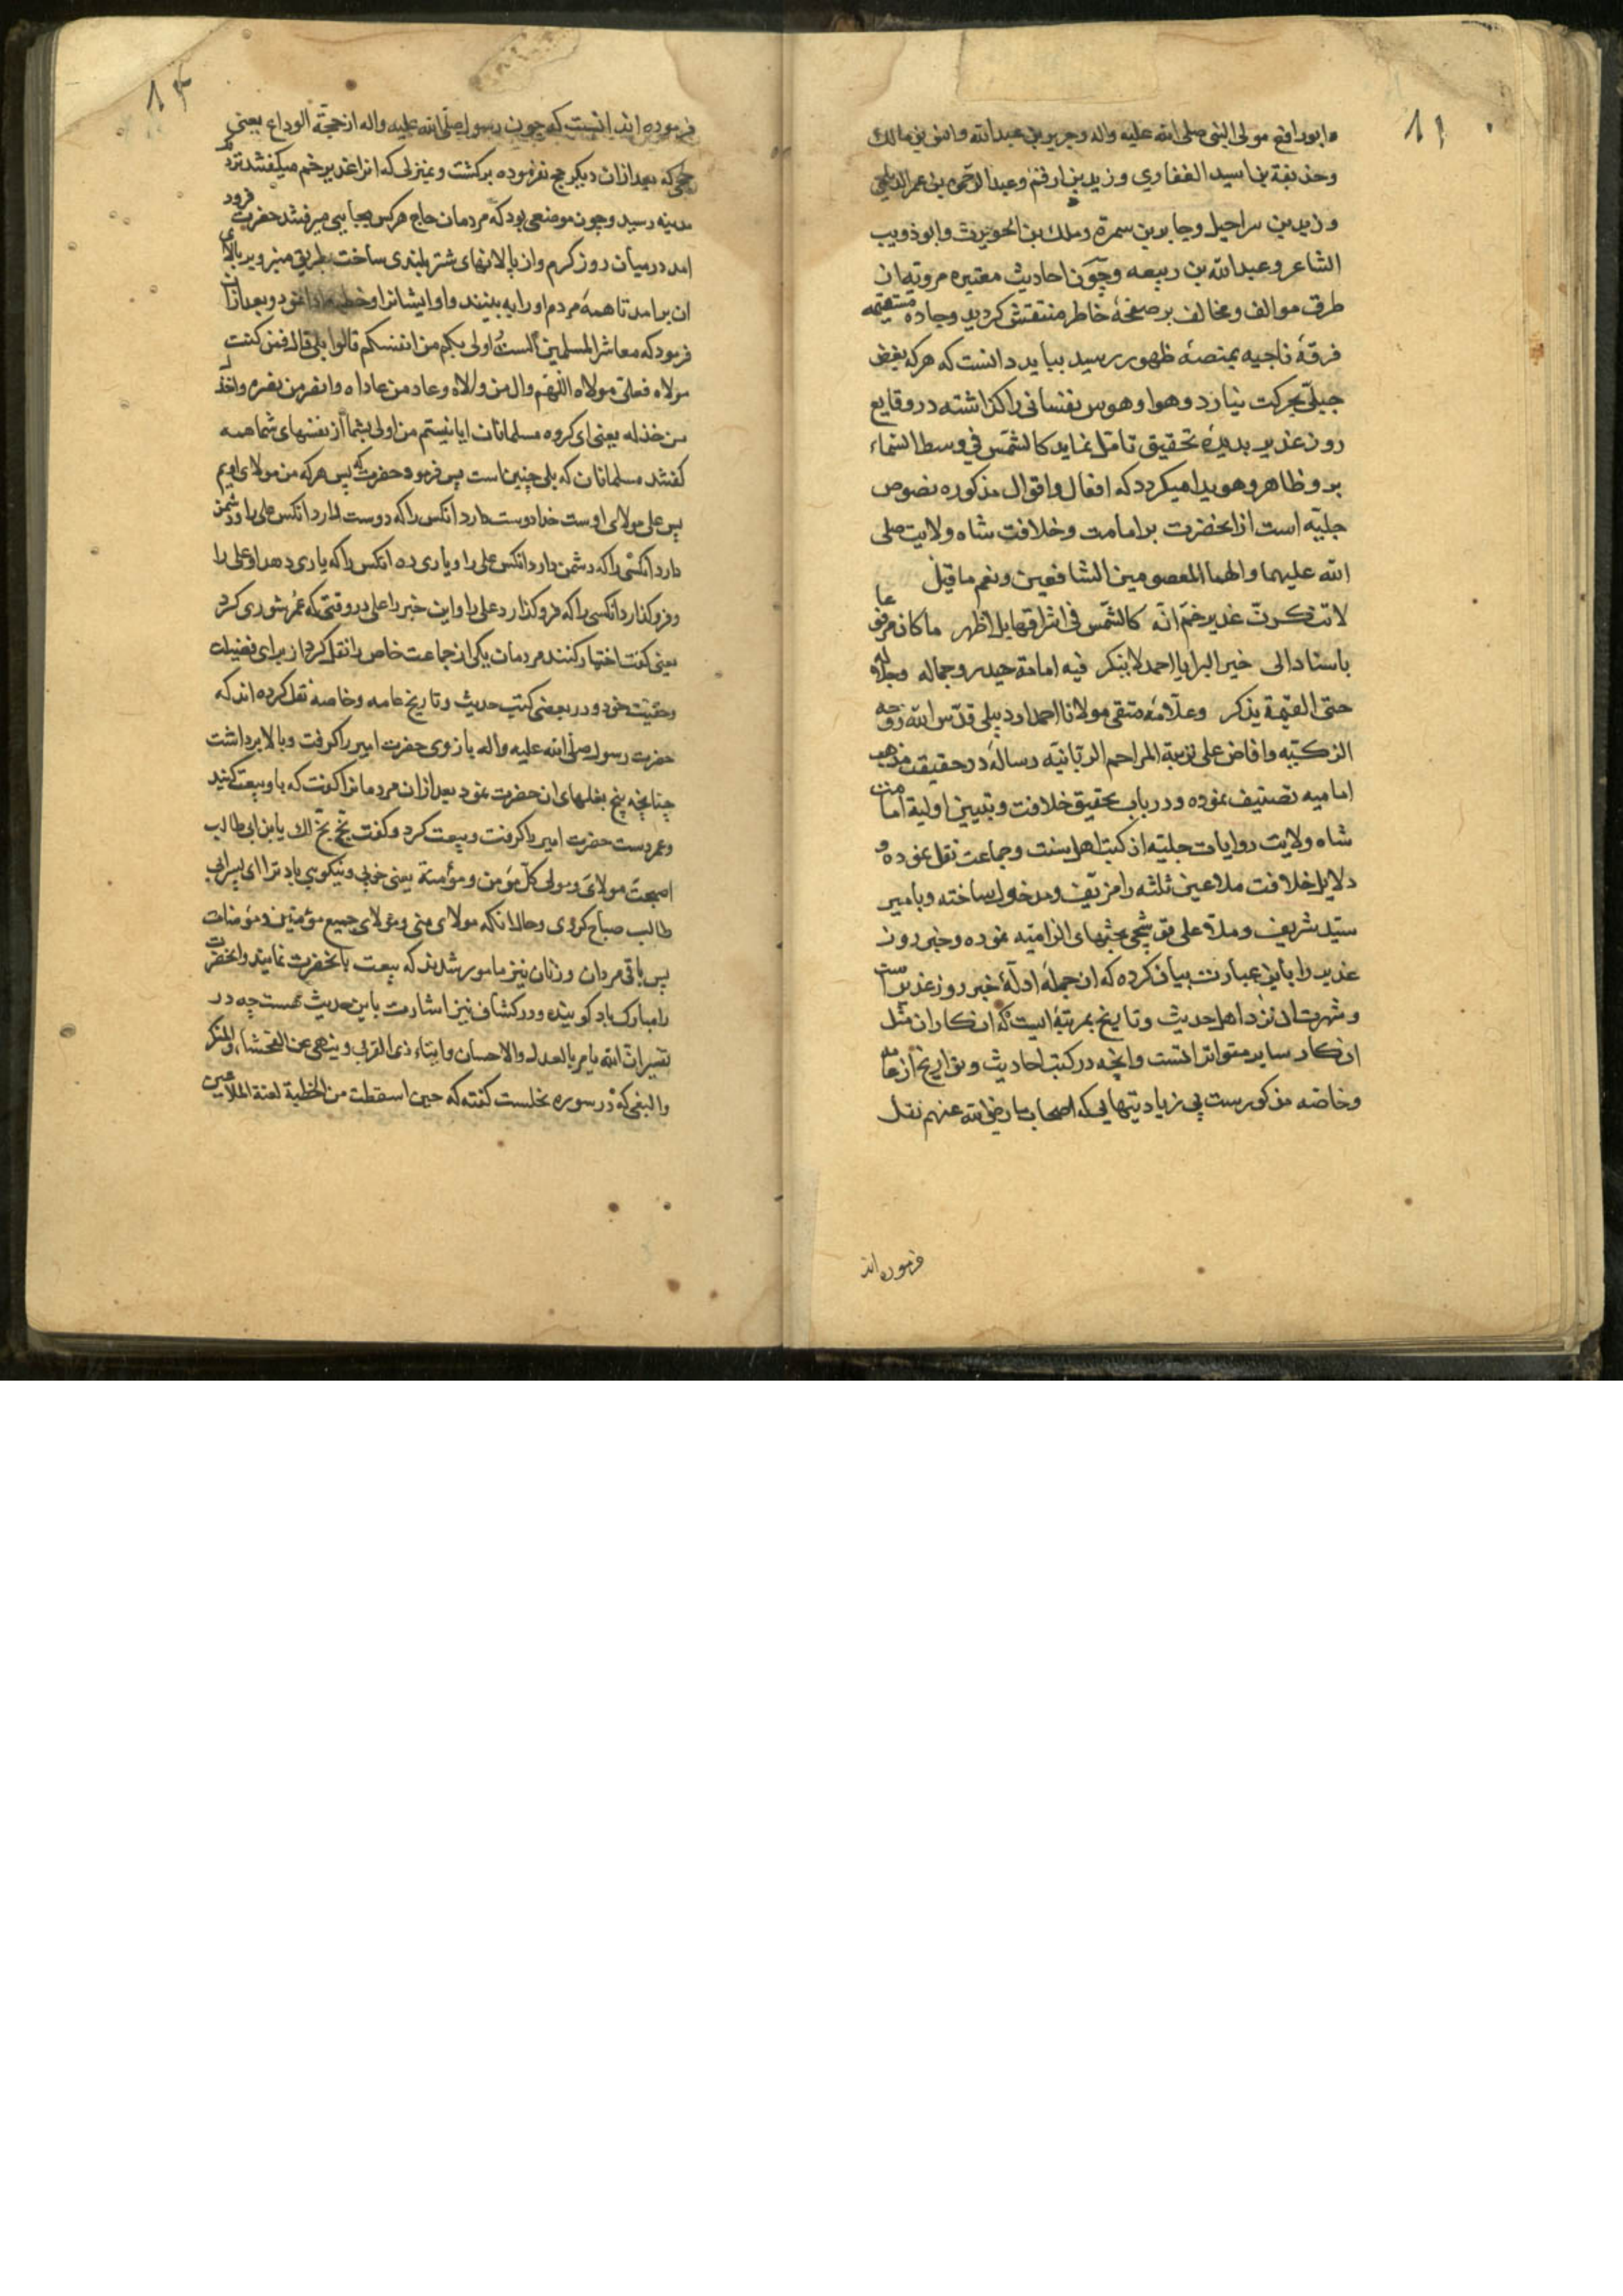 ۱۱
وابورافع مولی النبی صلی الله علیه واله وجریر بن عبدالله وانس بن مالک
وحذیفة بن اسید الغفاری وزید بن ارقم وعبدالرحمن بن یعمر الدیلمی
وزید بن شراحیل وجابر بن سمرة ومالک بن الحویرث وابوذویب
الشاعر وعبدالله بن ربیعه وچون احادیث معتبره مرویه از
طرق موالف ومخالف بر صفحهٔ خاطر منتقش کردید وجاده مستقیمه
فرقهٔ ناجیه بمنصهٔ ظهور رسید بباید دانست که هرکه بغض
جبلی بحرکت نیارد وهوا وهوس نفسانی را کذاشته در وقایع
روز غدیر بدیدهٔ تحقیق تامل نماید کالشمس فی وسط السماء
برو ظاهر وهویدا میکردد که افعال واقوال مذکوره نصوص
جلیه است از انحضرت بر امامت وخلافت شاه ولایت صلی
الله علیهما والهما المعصومین الشافعین ونعم ما قیل
لا تنکرن غدیر خم انه کالشمس فی اشراقها بل اظهر ما کان معروفا
باسناد الی خیر البرایا احمد لا ینکر فیه امامة حیدر وجماله وجلاله
حتی القیمة یذکر وعلامهٔ متقی مولانا احمد اردبیلی قدس الله روحه
الزکیه وافاض علی تربته المراحم الربانیه رسالهٔ در حقیقت مذهب
امامیه تصنیف نموده ودر باب تحقیق خلافت وتبیین اولیة امامت
شاه ولایت روایات جلیه از کتب اهل سنت وجماعت نقل نموده و
دلایل خلافت ملاعین ثلثه را مزیف ومدخول ساخته وبا میر
سید شریف وملا علی قوشجی بحثهای الزامیه نموده وخبر روز
غدیر را باین عبارت بیان کرده که از جمله ادلهٔ خبر روز غدیر است
وشهرت ان نزد اهل حدیث وتاریخ بمرتبهٔ ایست که انکار ان مثل
انکار سایر متواتراتست وانچه در کتب احادیث وتواریخ از عامه
وخاصه مذکورست بی زیادتیهایی که اصحاب ما رضی الله عنهم نقل
فرموده اند
۱۲
فرموده اند انست که چون رسول صلی الله علیه واله از حجة الوداع یعنی
حجی که بعد از ان دیکر حج نفرموده برکشت وبمنزلی که انرا غدیر خم میکفتند نزدیک
مدینه رسید وچون موضعی بود که مردمان حاج هرکس بجایی میرفتند حضرت فرود
امد در میان روز کرم واز پالانهای شتر بلندی ساخت بطریق منبر وبر بالای
ان برامد تا همهٔ مردم او را به بینند واو ایشانرا وخطبه ادا نمود وبعد از ان
فرمود که معاشر المسلمین الست اولی بکم من انفسکم قالوا بلی قال فمن کنت
مولاه فعلی مولاه اللهم وال من والاه وعاد من عاداه وانصر من نصره واخذل
من خذله یعنی ای کروه مسلمانان ایا نیستم من اولی بشما از نفسهای شما همه
کفتند مسلمانان که بلی چنین است پس فرمود حضرت که پس هرکه من مولای اویم
پس علی مولای اوست خدا دوست دارد انکس را که دوست دارد انکس علی را ودشمن
دارد انکس را که دشمن دارد انکس علی را ویاری ده انکس را که یاری دهد او علی را
وفروکذارد انکسی را که فروکذارد علی را واین خبر را علی در وقتی که عمر شوری کرد
یعنی کفت اختیار کنند مردمان یکی از جماعت خاص را نقل کرد از برای فضیلت
وحقیت خود ودر بعضی کتب حدیث وتاریخ عامه وخاصه نقل کرده اند که
حضرت رسول صلی الله علیه واله بازوی حضرت امیر را کرفت وبالا برداشت
چنانچه پنج بغلهای ان حضرت نمود بعد از ان مردمانرا کفت که با او بیعت کنید
وعمر دست حضرت امیر را کرفت وبیعت کرد وکفت بخ بخ لک یا بن ابی طالب
اصبحت مولای ومولی کل مؤمن ومؤمنة یعنی خوبی ونیکویی باد ترا ای پسر ابی
طالب صباح کردی وحال انکه مولای منی ومولای جمیع مؤمنین ومؤمنات
پس باقی مردان وزنان نیز مامور شدند که بیعت بانحضرت نمایند وانحضرت
را مبارک باد کویند ودر کشاف نیز اشارت باین حدیث هست چه در
تفسیر ان الله یامر بالعدل والاحسان وایتاء ذی القربی وینهی عن الفحشاء والمنکر
والبغی که در سوره نحلست کفته که حین اسقطت من الخطبة لعنة الملاعین